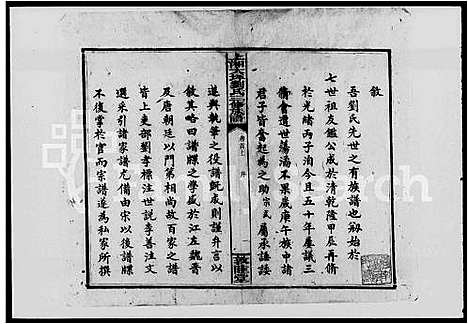 敘
吾劉氏先世之有族譜也剏始於
七世祖友鑑公成於清乾隆甲辰再脩
於光緒丙子洎今且五十年屢議三
脩會遭世蕩潏不果歲庚午族中諸
君子皆奮起為之助宗武屬承諈諉
遂與執筆之役譜既成則謹弁言以
敘其略曰譜牒之學盛於江左魏晉
及唐朝廷以門第相尚故百家之譜
皆上吏部劉孝標注世說李善注文
選采引諸家譜尤備由宋以後譜牒
不復掌於官而宗譜遂為私家所撰